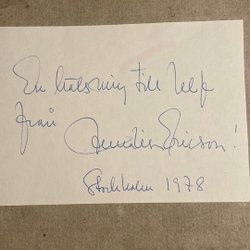 En hälsning till Ulf
från
Ericson!
Stockholm 1978